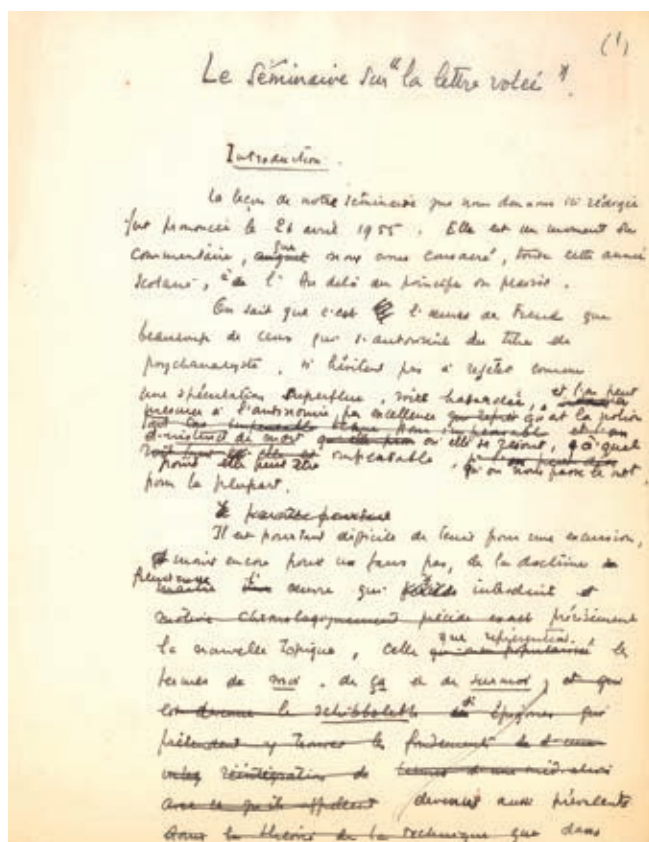 (1)
Le Séminaire sur "la lettre volée".
Introduction.
La leçon de notre Séminaire que nous donnons ici rédigée
fut prononcée le 26 avril 1955. Elle est un moment du
commentaire, que nous avons consacré, toute cette année
scolaire, à l'Au delà du principe du plaisir.
On sait que c'est l'œuvre de Freud que
beaucoup de ceux qui s'autorisent du titre de
psychanalyste, n'hésitent pas à rejeter comme
une spéculation superflue, voire hasardée, et l'on peut
mesurer à l'antinomie par excellence qu'est la notion
d'instinct de mort où elle se résout, à quel
point elle peut être impensable, qu'on nous passe le mot,
pour la plupart.
Il est pourtant difficile de tenir pour une excursion,
mais encore pour un faux pas, de la doctrine
œuvre qui introduit
précisément
la nouvelle topique, celle que représentent les
termes de moi, de ça et de surmoi, et qui
le schibboleth épigones qui
prétendent y trouver le fondement
réintégration de
devenus aussi prévalents
dans la théorie de la technique que dans